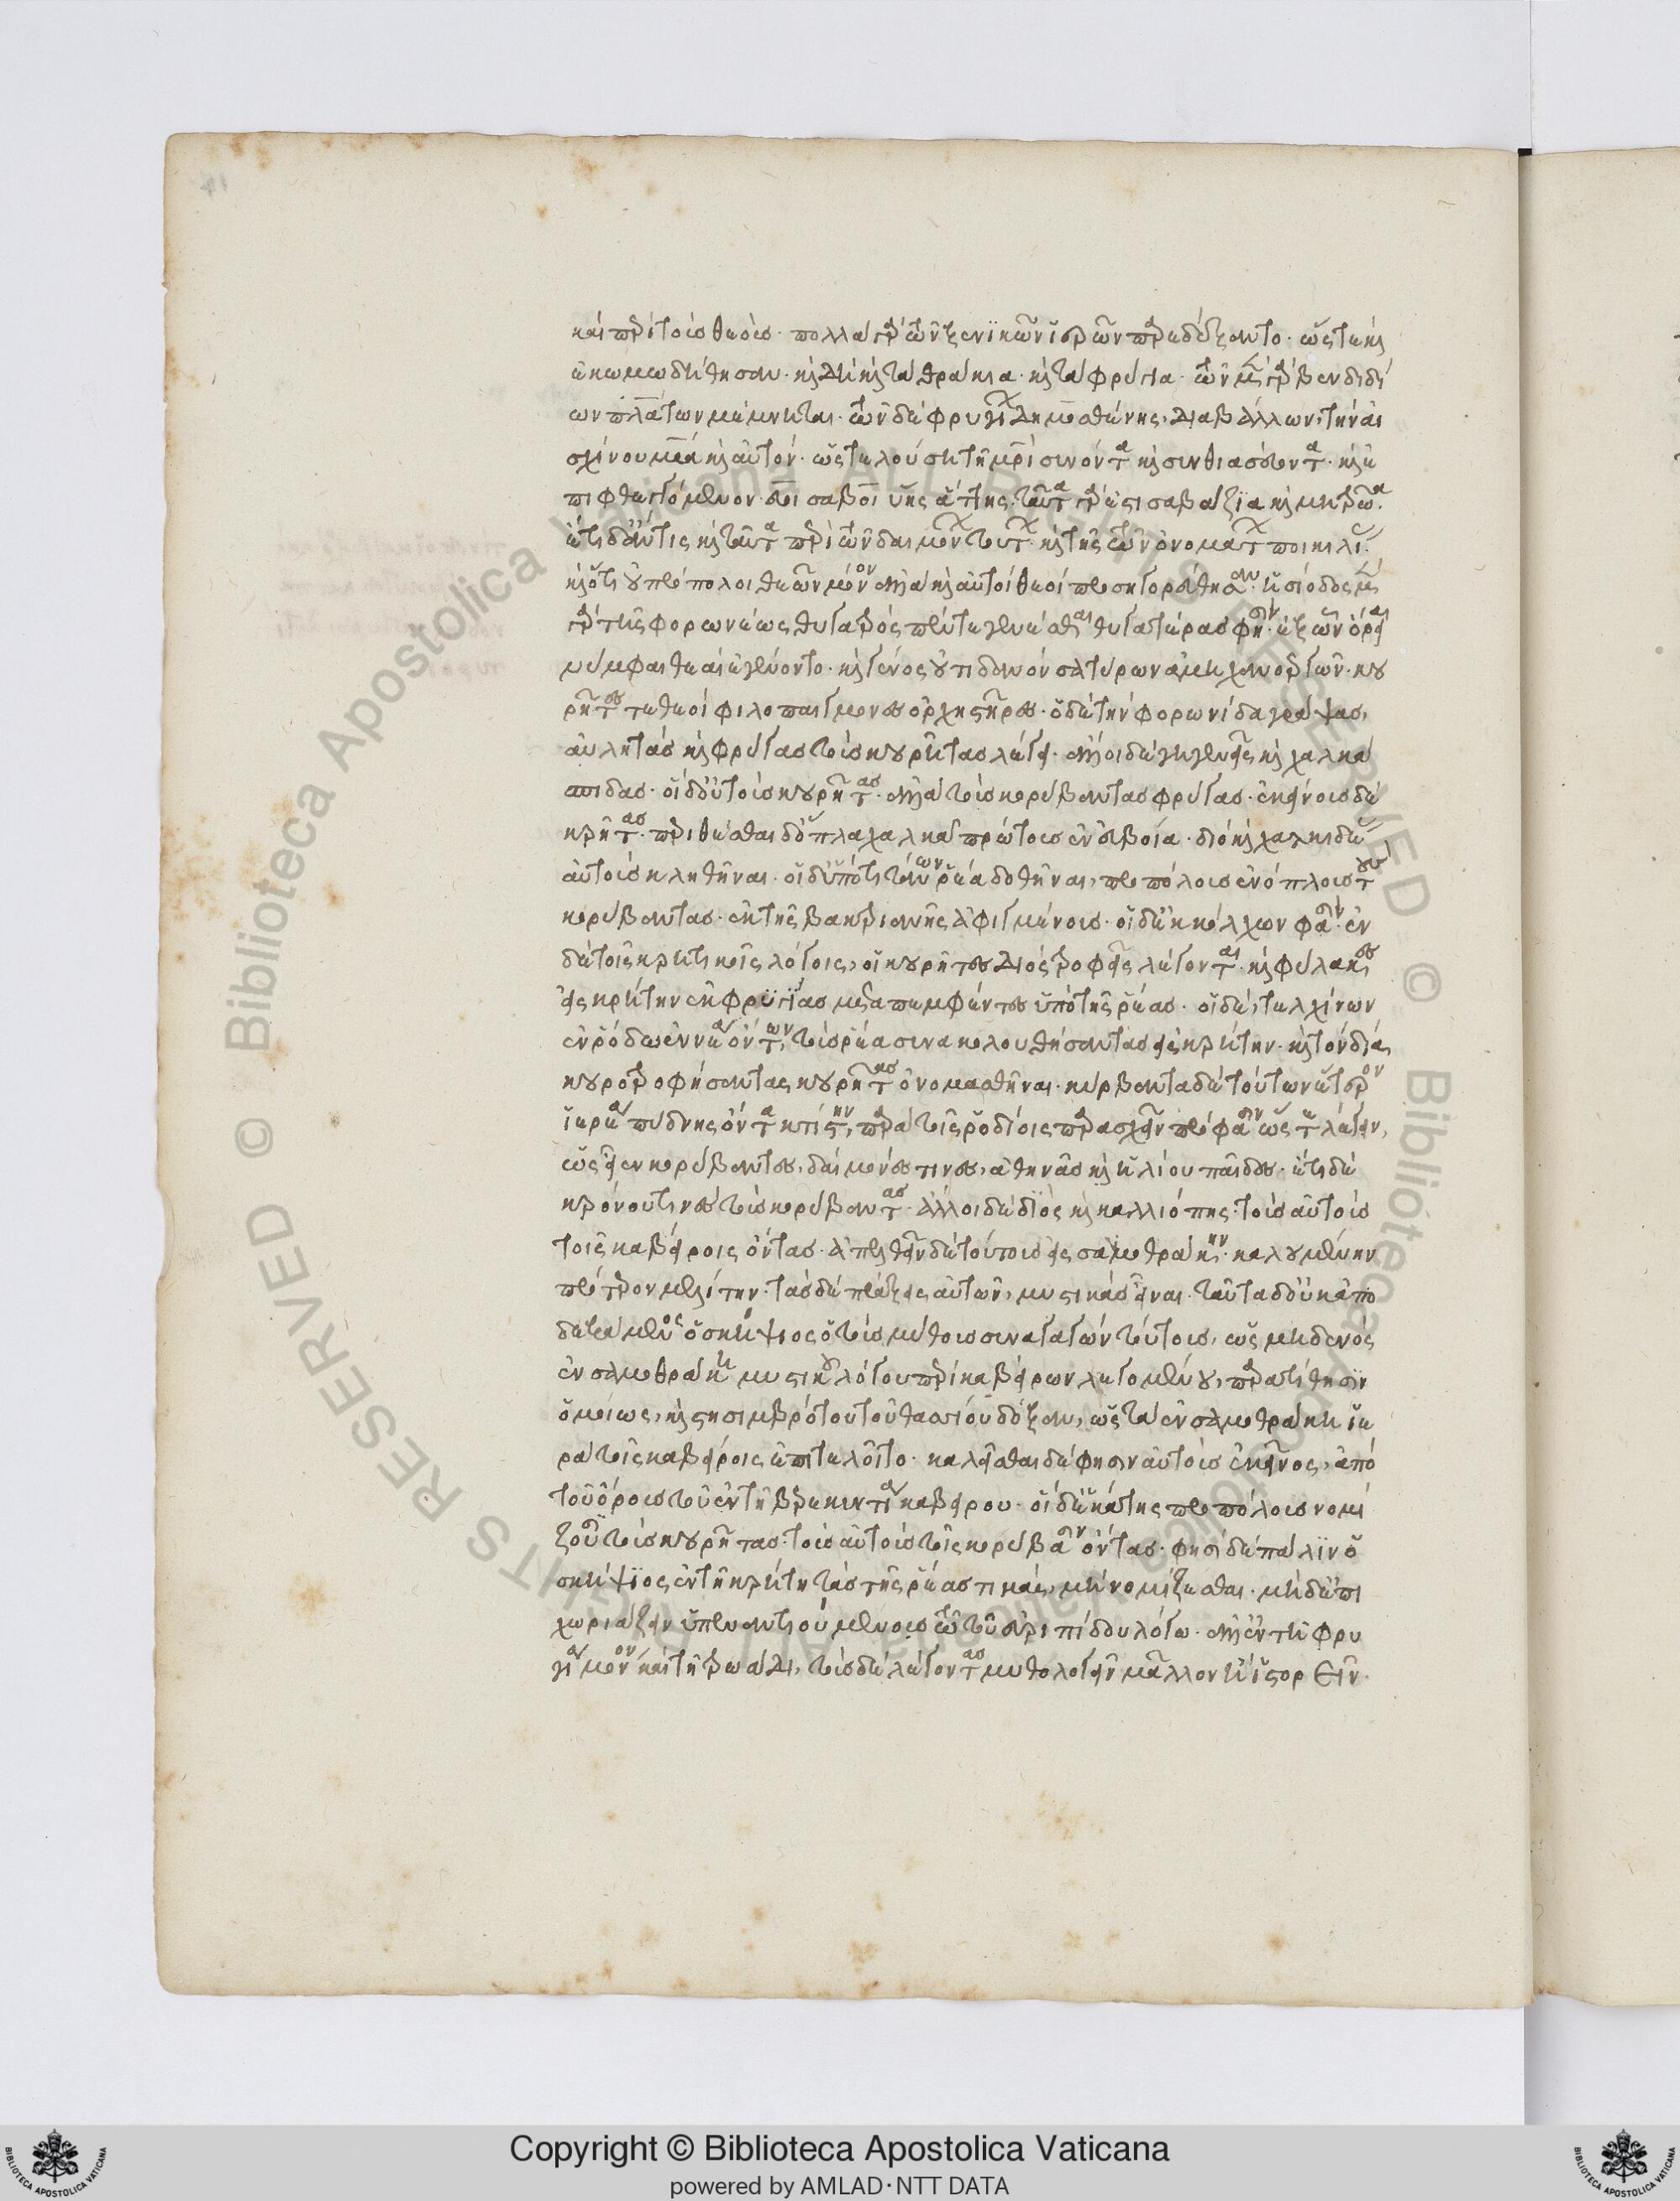 καὶ περὶ τοὺς θεούς· πολλὰ γὰρ τῶν ξενικῶν ἱερῶν παρεδέξαντο· ὥστε καὶ
ἐκωμωδήθησαν· καὶ δὴ καὶ τὰ θράκια· καὶ τὰ φρύγια· τῶν μὲν γὰρ βενδιδί
ων πλάτων μέμνηται· τῶν δὲ φρυγίων δημοσθένης, διαβάλλων, τὴν αἰ
σχίνου μητέρα καὶ αὐτόν· ὡς τελούση τῆ μητρὶ συνόντα καὶ συνθιασεύοντα· καὶ ἐ
πιφθεγγόμενον εὐοῖ σαβοῖ ὕης ἄττης· ταῦτα γάρ ἐστι σαβάζια καὶ μητρῶα·
ἔτι δ' ἄν τις καὶ ταῦτα περὶ τῶν δαιμόνων τούτων· καὶ τῆς τῶν ὀνομάτων ποικιλίας·
καὶ ὅτι οὐ πρόπολοι θεῶν μόνον ἀλλὰ καὶ αὐτοὶ θεοὶ προσηγορεύθησαν· ἡσίοδος μὲν
γὰρ τῆς φορωνέως θυγατρὸς πέντε γενέσθαι θυγατέρας φησὶν· ἐξ ὧν ὀρεῖαι
νύμφαι θεαὶ ἐγένοντο· καὶ γένος οὐτιδανὸν σατύρων ἀμηχανοεργῶν· κου
ρῆτες τε θεοὶ φιλοπαίγμονες ὀρχηστῆρες· ὁ δὲ τὴν φορωνίδα γράψας,
αὐλητὰς καὶ φρύγας τοὺς κουρῆτας λέγει· ἄλλοι δὲ γηγενεῖς καὶ χαλκά
σπιδας· οἱ δ' οὐ τοὺς κουρῆτας· ἀλλὰ τοὺς κορύβαντας φρύγας· ἐκείνους δὲ
κρῆτας· περιθέσθαι δ' ὅπλα χαλκᾶ πρώτους ἐν εὐβοία· διὸ καὶ χαλκιδεῖς
αὐτοὺς κληθῆναι· οἱ δ' ὑπὸ τιτάνων ῥέα δοθῆναι, προπόλους ἐνόπλους τοὺς
κορύβαντας· ἐκ τῆς βακτριανῆς ἀφιγμένους· οἱ δ' ἐκ κόλχων φασὶν· ἐν
δὲ τοῖς κρητικοῖς λόγοις, οἱ κουρῆτες διὸς τροφεῖς λέγονται· καὶ φύλακες
εἰς κρήτην ἐκ φρυγίας μεταπεμφθέντες ὑπὸ τῆς ῥέας· οἱ δὲ, τελχίνων
ἐν ῥόδω ἐννέα ὄντων, τοὺς ῥέα συνακολουθήσαντας εἰς κρήτην· καὶ τὸν δία
κουροτροφήσαντας κουρῆτας ὀνομασθῆναι· κύρβαντα δὲ τούτων ἑταῖρον
ἱεραπύδνης ὄντα κτίστην, παρὰ τοῖς ῥοδίοις παρασχεῖν πρόφασιν ὥστε λέγειν,
ὡς εἶεν κορύβαντες, δαίμονές τινες, ἀθηνᾶς καὶ ἡλίου παῖδες· ἔτι δὲ
κρόνου τινὲς τοὺς κορύβαντας· ἄλλοι δὲ διὸς καὶ καλλιόπης· τοὺς αὐτοὺς
τοῖς καβείροις ὄντας· ἀπελθεῖν δὲ τούτους εἰς σαμοθράκην· καλουμένην
πρότερον μελίτην· τὰς δὲ πράξεις αὐτῶν, μυστικὰς εἶναι· ταῦτα δ' οὐκ ἀπο
δεξάμενος ὁ σκήψιος ὁ τοὺς μύθους συναγαγὼν τούτους, ὡς μηδενὸς
ἐν σαμοθράκη μυστικοῦ λόγου περὶ καβείρων λεγομένου, παρατίθησιν
ὁμοίως, καὶ στησιμβρότου τοῦ θασίου δόξαν, ὡς τὰ ἐν σαμοθράκη ἱε
ρὰ τοῖς καβείροις ἐπιτελοῖτο· καλεῖσθαι δέ φησιν αὐτοὺς ἐκεῖνος, ἀπὸ
τοῦ ὄρους τοῦ ἐν τῆ βερεκυντία καβείρου· οἱ δ' ἑκάτης προπόλους νομί
ζουσι τοὺς κουρῆτας· τοὺς αὐτοὺς τοῖς κορύβασιν ὄντας· φησὶ δὲ πάλιν ὁ
σκήψιος ἐν τῆ κρήτη τὰς τῆς ῥέας τιμὰς, μὴ νομίζεσθαι· μὴδ' ἐπι
χωριάζειν ὑπεναντιούμενος τῶ τοῦ εὐριπίδου λόγω· ἀλλ' ἐν τῆ φρυ
γία μόνον καὶ τῆ τρωάδι, τοὺς δὲ λέγοντας μυθολογεῖν μᾶλλον ἢ ἱστορεῖν·
Copyright © Biblioteca Apostolica Vaticana
powered by AMLAD·NTT DATA